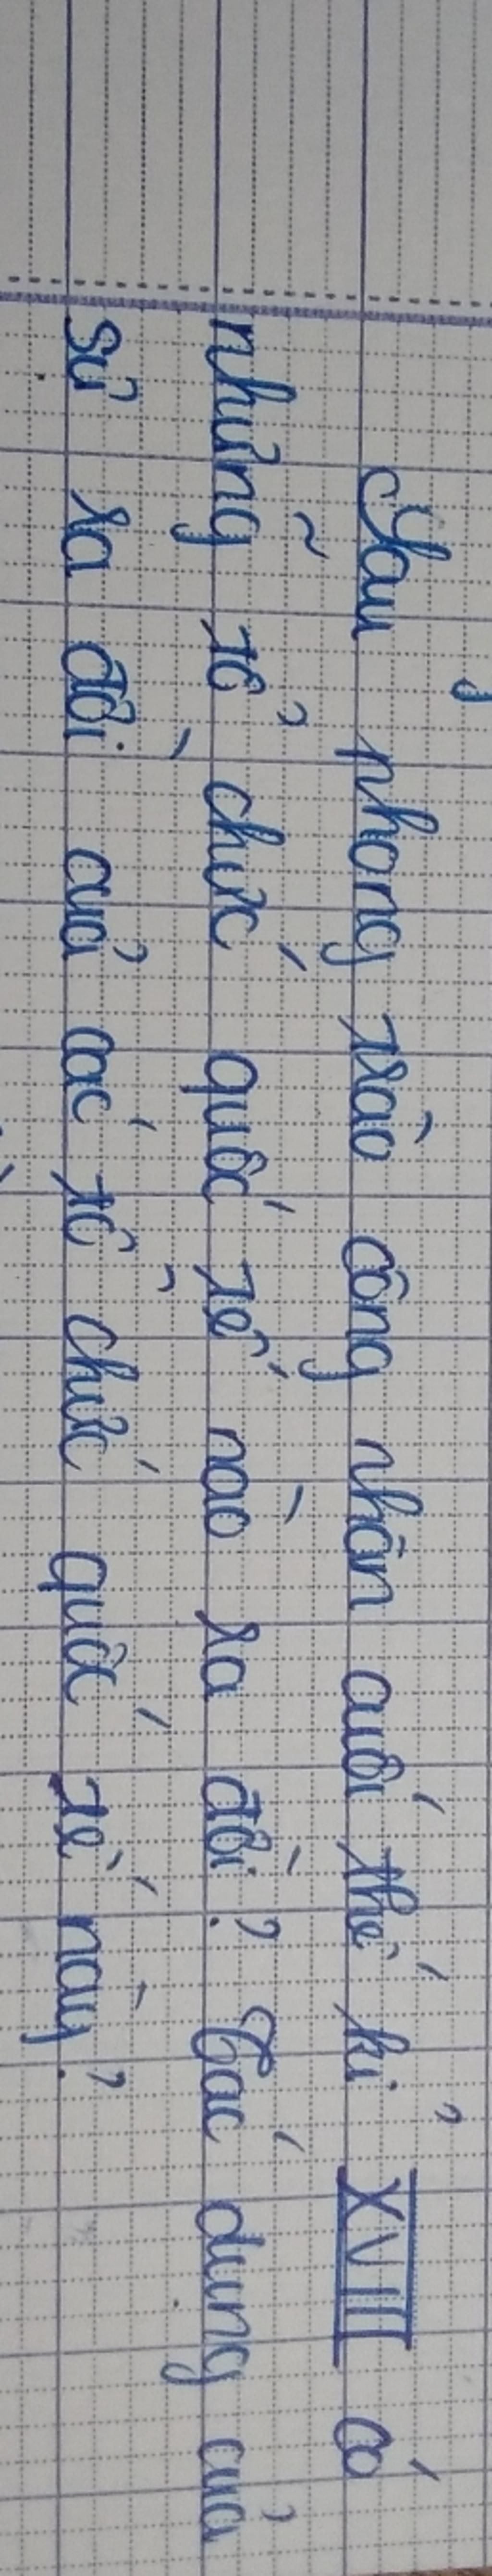 Sau phong trào công nhân cuối thế kỉ XVIII có
những tổ chức quốc tế nào ra đời? Tác dụng của
sự ra đời của các tổ chức quốc tế này?